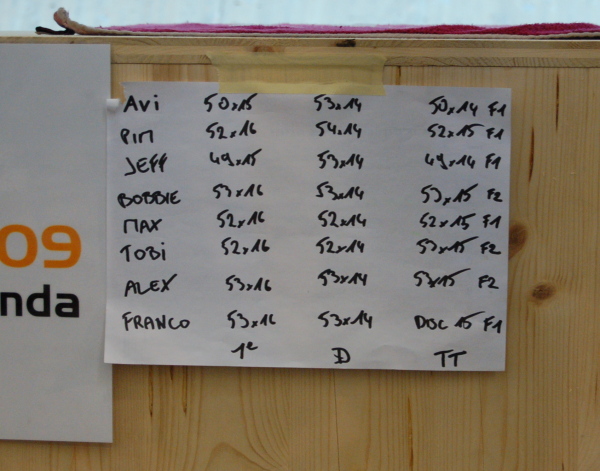 09
nda
Avi 50x15 53x14 50x14 F1
PIM 52x16 54x14 52x15 F1
JEFF 49x15 53x14 49x14 F1
BOBBIE 53x16 53x14 53x15 F2
MAX 52x16 52x14 52x15 F1
TOBi 52x16 52x14 53x15 F2
ALEX 53x16 53x14 53x15 F2
FRANCO 53x16 53x14 DOC 15 F1
1e D TT